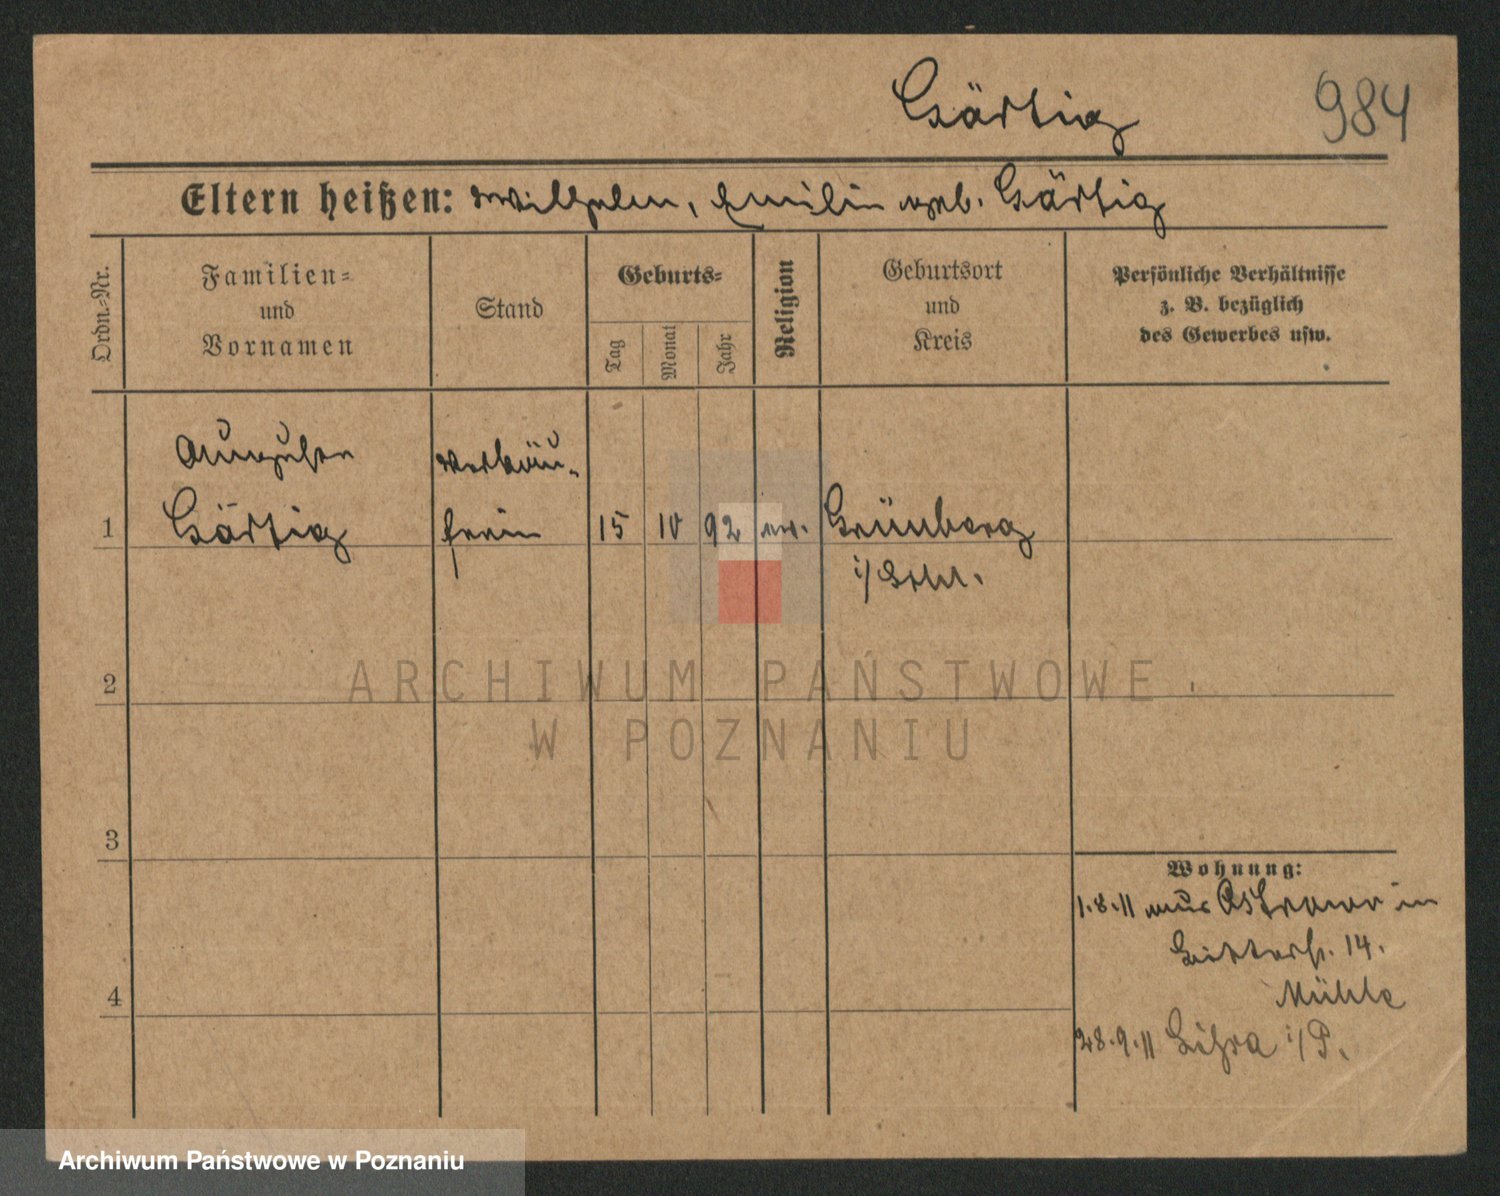 Gärtig
984
Eltern heißen: Wilhelm, Emilie geb. Gärtig
Ordn.-Nr.
Familien-
und
Vornamen
Stand
Geburts-
Tag
Monat
Jahr
Religion
Geburtsort
und
Kreis
Persönliche Verhältnisse
z. B. bezüglich
des Gewerbes usw.
Auguste
Gärtig
Verkäu-
ferin
1
15
10
92
ev.
Grünberg
i/Schl.
2
3
4
Wohnung:
1.8.11 aus Ostrowo in
14.
Mühle
28.9.11 Lissa i/P.
ARCHIWUM PAŃSTWOWE
W POZNANIU
Archiwum Państwowe w Poznaniu